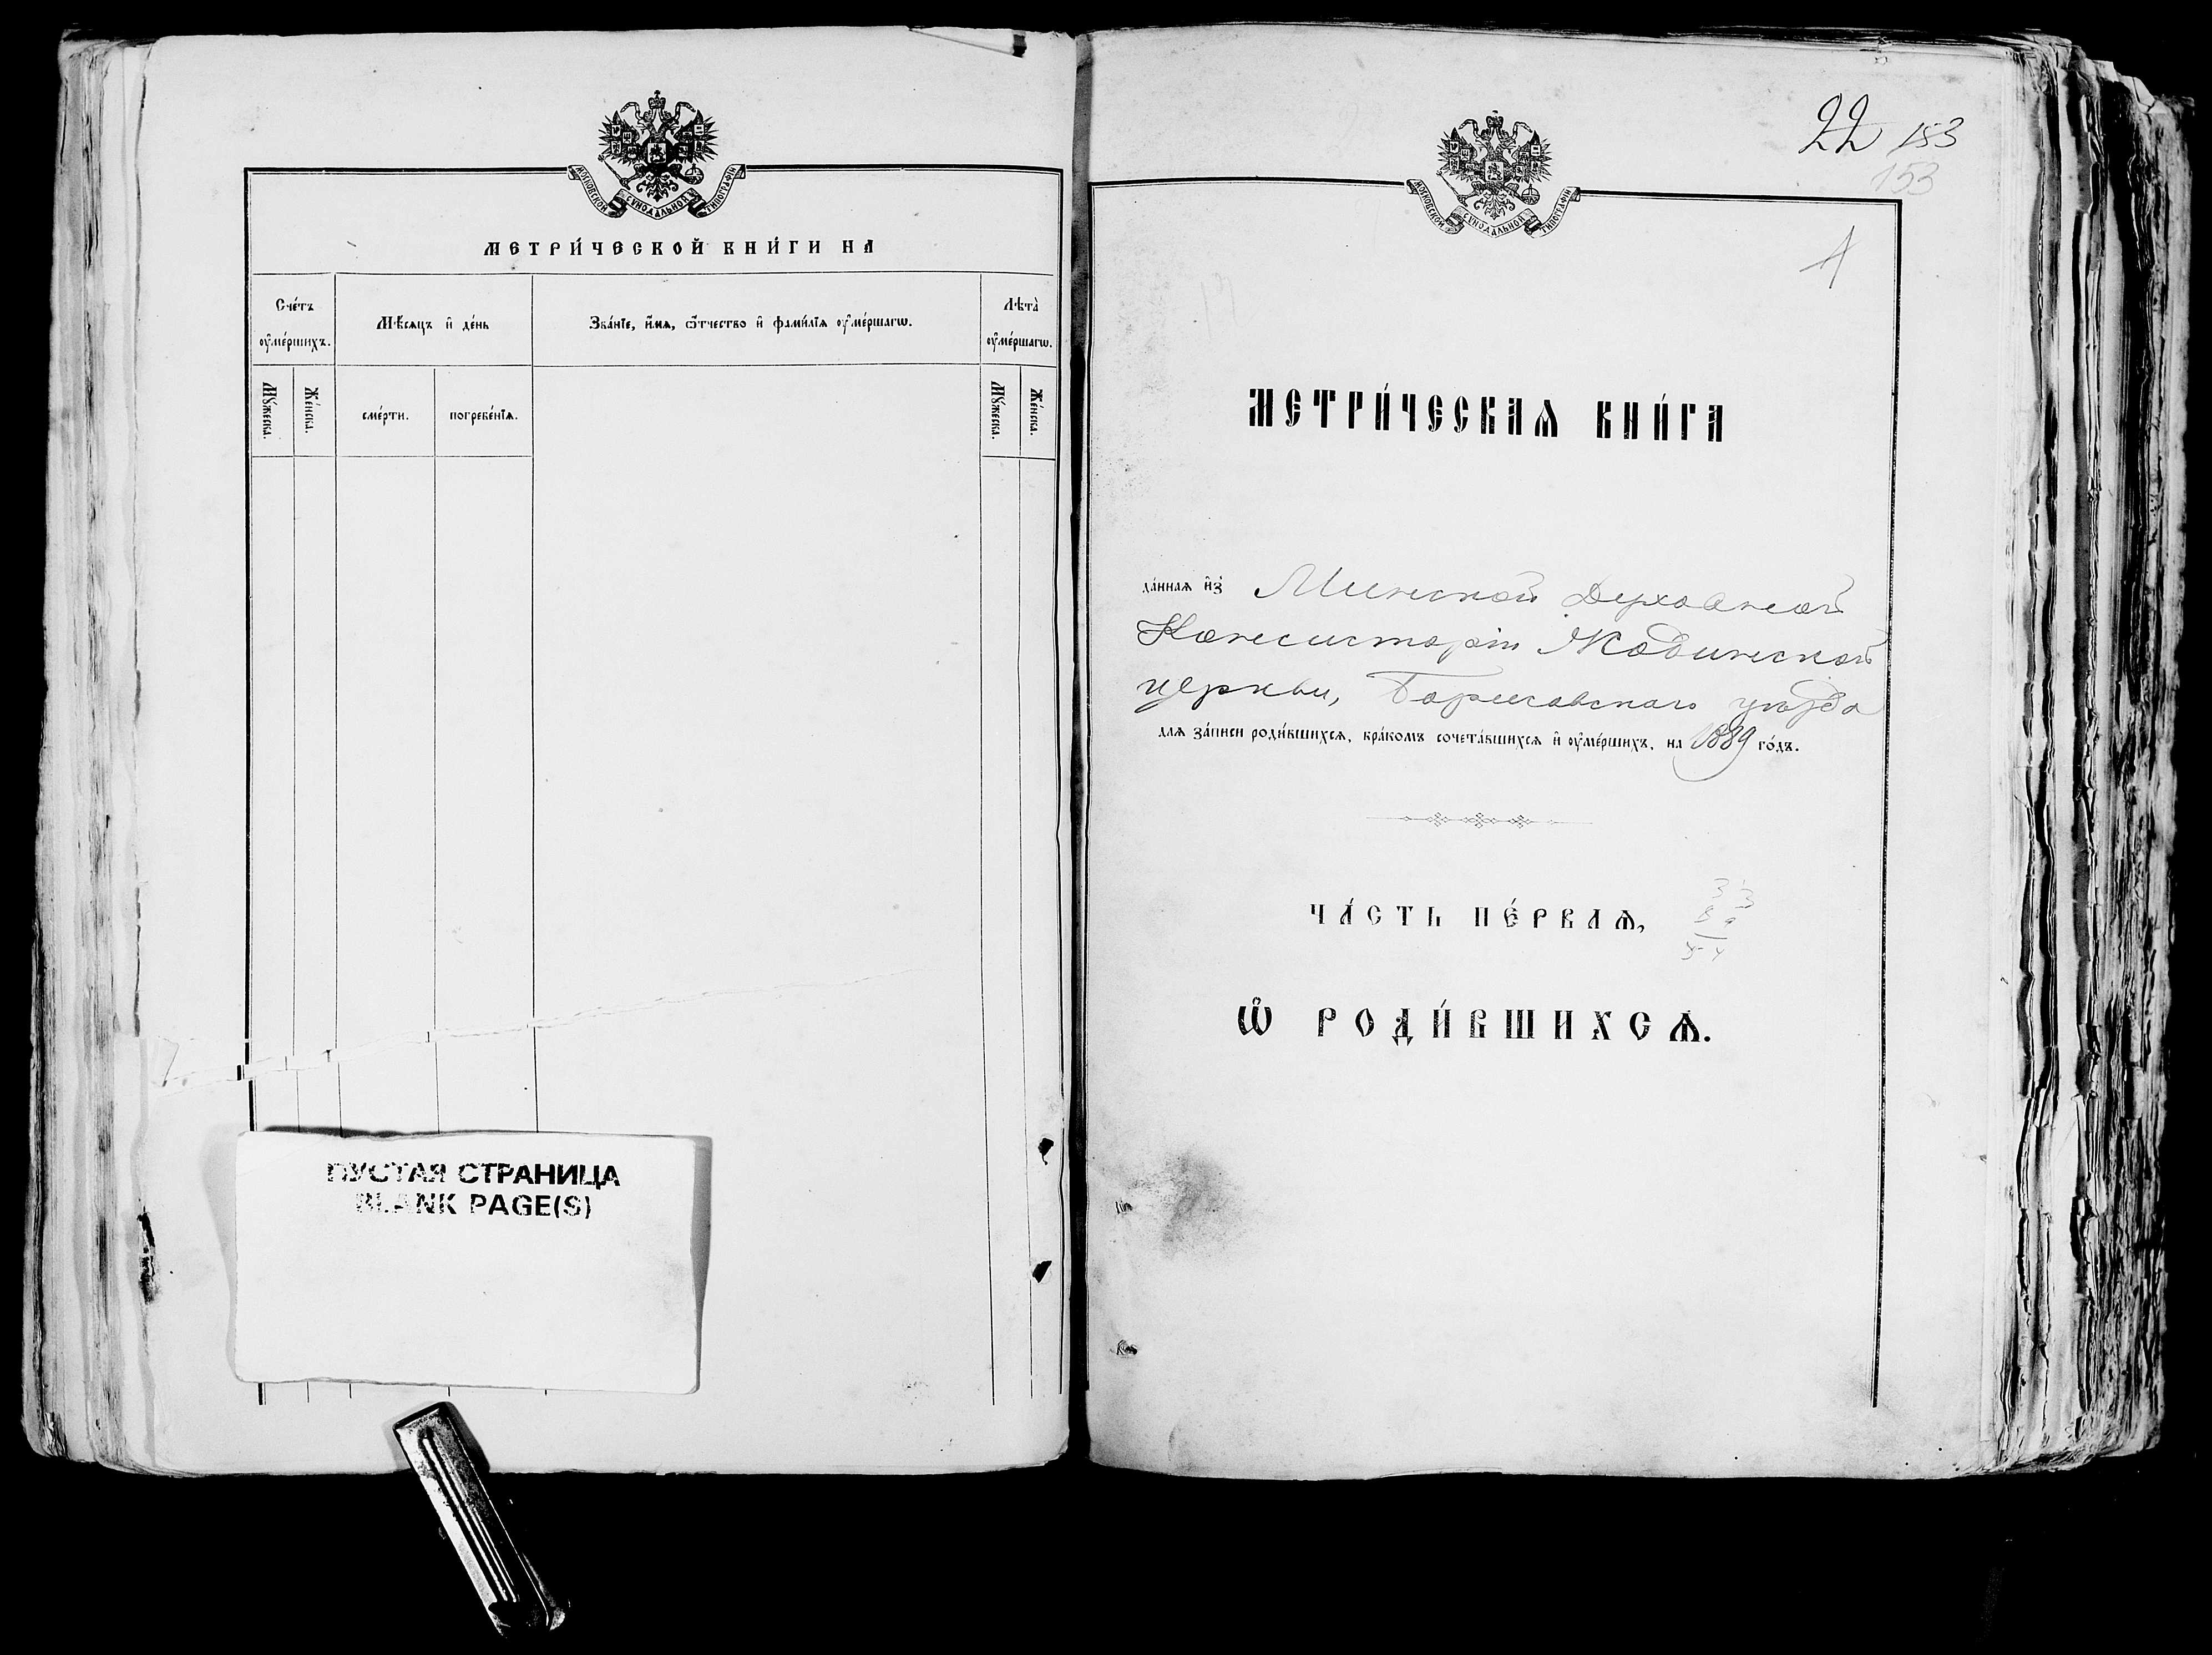 МОСКОВСКОЙ СѴНОДАЛЬНОЙ ТИПОГРАФІИ
МЕТРИ́ЧЕСКОЙ КНИ́ГИ НА
Сче́тъ ᲂу҆ме́ршихъ.
Мѣ́сяцъ и҆ де́нь
Зва́нїе, и҆́мя, ѻ҆́тчество и҆ фами́лїя ᲂу҆ме́ршагѡ.
Лѣта̀ ᲂу҆ме́ршагѡ.
Мꙋ́жеска.
Же́нска.
сме́рти.
погребе́нїя.
Мꙋ́жеска.
Же́нска.
ПУСТАЯ СТРАНИЦА
BLANK PAGE(S)
22 153
153
МОСКОВСКОЙ СѴНОДАЛЬНОЙ ТИПОГРАФІИ
МЕТРИ́ЧЕСКАѦ КНИ́ГА
да́нная и҆з̾ Минской Духовной
Консисторіи Жодинской
церкви, Борисовскаго уѣзда
для за́писи роди́вшихся, бра́комъ сочета́вшихся и҆ ᲂу҆ме́ршихъ, на 1889 го́дъ.
ЧА́СТЬ ПЕ́РВАѦ,
Ѽ РОДИ́ВШИХСѦ.